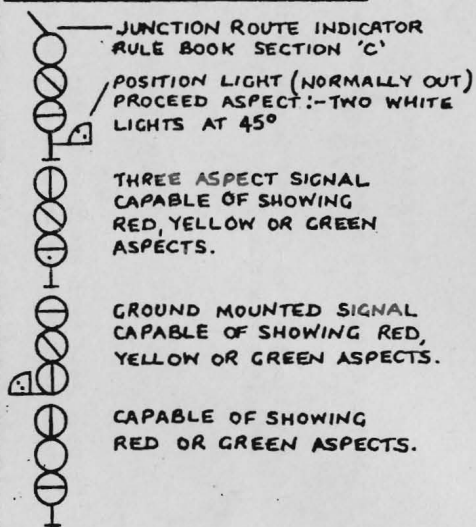 JUNCTION ROUTE INDICATOR
RULE BOOK SECTION 'C'
POSITION LIGHT (NORMALLY OUT)
PROCEED ASPECT:-TWO WHITE
LIGHTS AT 45°
THREE ASPECT SIGNAL
CAPABLE OF SHOWING
RED, YELLOW OR GREEN
ASPECTS.
GROUND MOUNTED SIGNAL
CAPABLE OF SHOWING RED,
YELLOW OR GREEN ASPECTS.
CAPABLE OF SHOWING
RED OR GREEN ASPECTS.